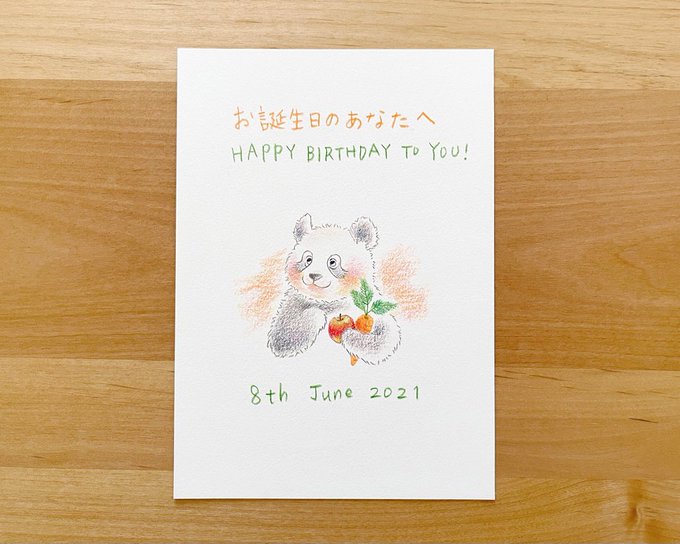 お誕生日のあなたへ
HAPPY BIRTHDAY TO YOU!
8th June 2021